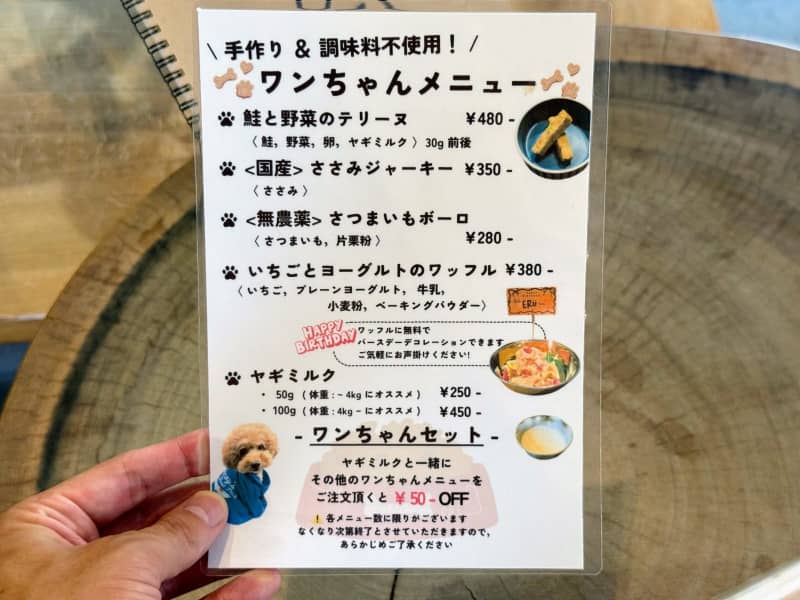 \ 手作り & 調味料不使用！ /
ワンちゃんメニュー
鮭と野菜のテリーヌ ¥480 -
〈 鮭, 野菜, 卵, ヤギミルク 〉 30g 前後
<国産> ささみジャーキー ¥350 -
〈 ささみ 〉
<無農薬> さつまいもボーロ
〈 さつまいも, 片栗粉 〉 ¥280 -
いちごとヨーグルトのワッフル ¥380 -
〈 いちご, プレーンヨーグルト, 牛乳,
小麦粉, ベーキングパウダー〉
ERU
HAPPY
BIRTHDAY
ワッフルに無料で
バースデーデコレーションできます
ご気軽にお声掛けください!
ヤギミルク
・ 50g ( 体重 : ~ 4kg にオススメ ) ¥250 -
・ 100g ( 体重 : 4kg ~ にオススメ ) ¥450 -
- ワンちゃんセット -
ヤギミルクと一緒に
その他のワンちゃんメニューを
ご注文頂くと ¥ 50 - OFF
各メニュー数に限りがございます
なくなり次第終了とさせていただきますので,
あらかじめご了承ください